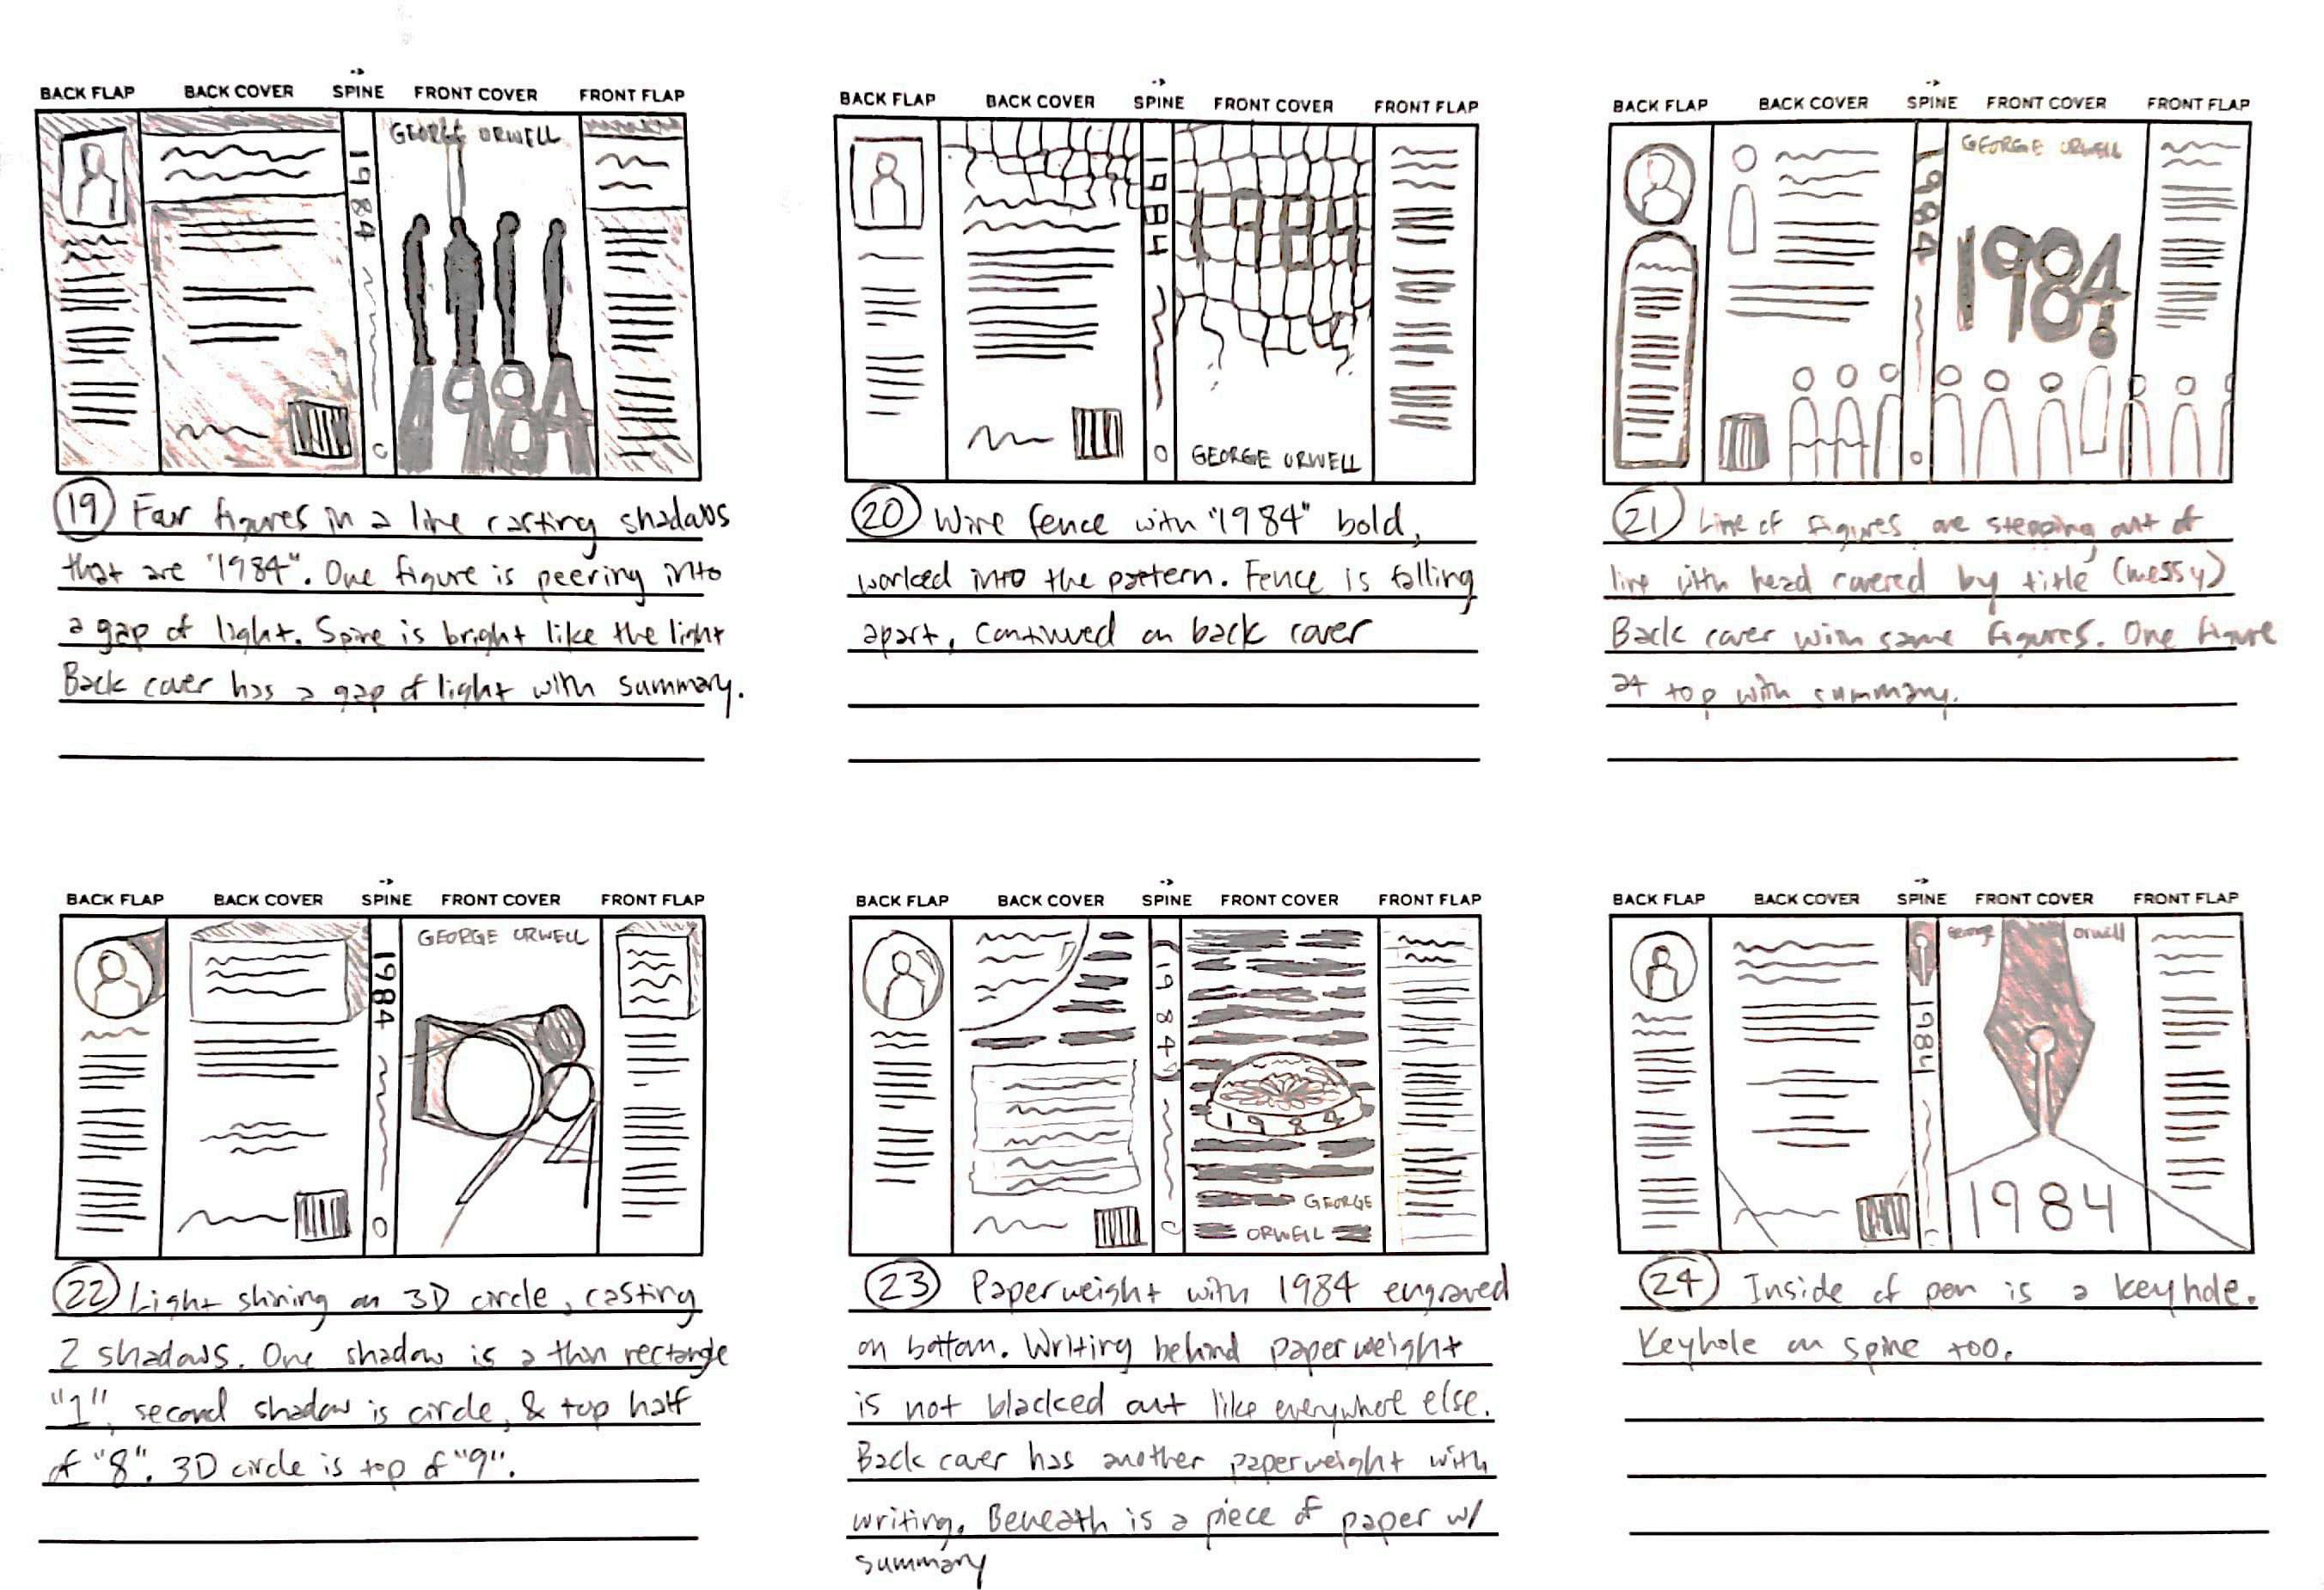 BACK FLAP BACK COVER SPINE FRONT COVER FRONT FLAP
GEORGE ORWELL
1984
1984
19 Four figures in a line casting shadows
that are "1984". One figure is peering into
a gap of light. Spine is bright like the light
Back cover has a gap of light with summary.
BACK FLAP BACK COVER SPINE FRONT COVER FRONT FLAP
1984
1984
GEORGE ORWELL
20 Wire fence with "1984" bold,
worked into the pattern. Fence is falling
apart, continued on back cover
BACK FLAP BACK COVER SPINE FRONT COVER FRONT FLAP
GEORGE ORWELL
1984
1984
21 Line of figures, one stepping out of
line with head covered by title (messy)
Back cover with same figures. One figure
at top with summary.
BACK FLAP BACK COVER SPINE FRONT COVER FRONT FLAP
GEORGE ORWELL
1984
22 Light shining on 3D circle, casting
2 shadows. One shadow is a thin rectangle
"1", second shadow is circle, & top half
of "8". 3D circle is top of "9".
BACK FLAP BACK COVER SPINE FRONT COVER FRONT FLAP
1984
1984
GEORGE
ORWELL
23 Paperweight with 1984 engraved
on bottom. Writing behind paperweight
is not blacked out like everywhere else.
Back cover has another paperweight with
writing. Beneath is a piece of paper w/
summary
BACK FLAP BACK COVER SPINE FRONT COVER FRONT FLAP
George Orwell
1984
1984
24 Inside of pen is a keyhole.
Keyhole on spine too.